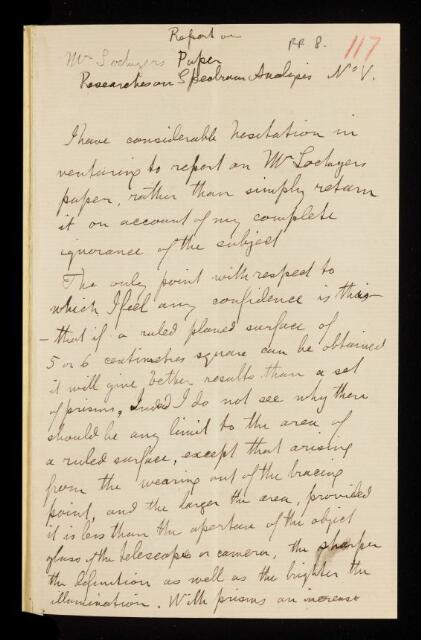 Report on
RR 8. 117
Mr Lockyers Paper
Researches on Spectrum Analysis No V.
I have considerable hesitation in
venturing to report on Mr Lockyers
paper, rather than simply return
it on account of my complete
ignorance of the subject
The only point with respect to
which I feel any confidence is this
– that if a ruled planed surface of
5 or 6 centimetres square can be obtained
it will give better results than a set
of prisms, Indeed I do not see why there
should be any limit to the area of
a ruled surface, except that arising
from the wearing out of the tracing
point, and the larger the area, provided
it is less than the aperture of the object
glass of the telescope or camera, the sharper
the definition as well as the brighter the
illumination. With prisms an increase